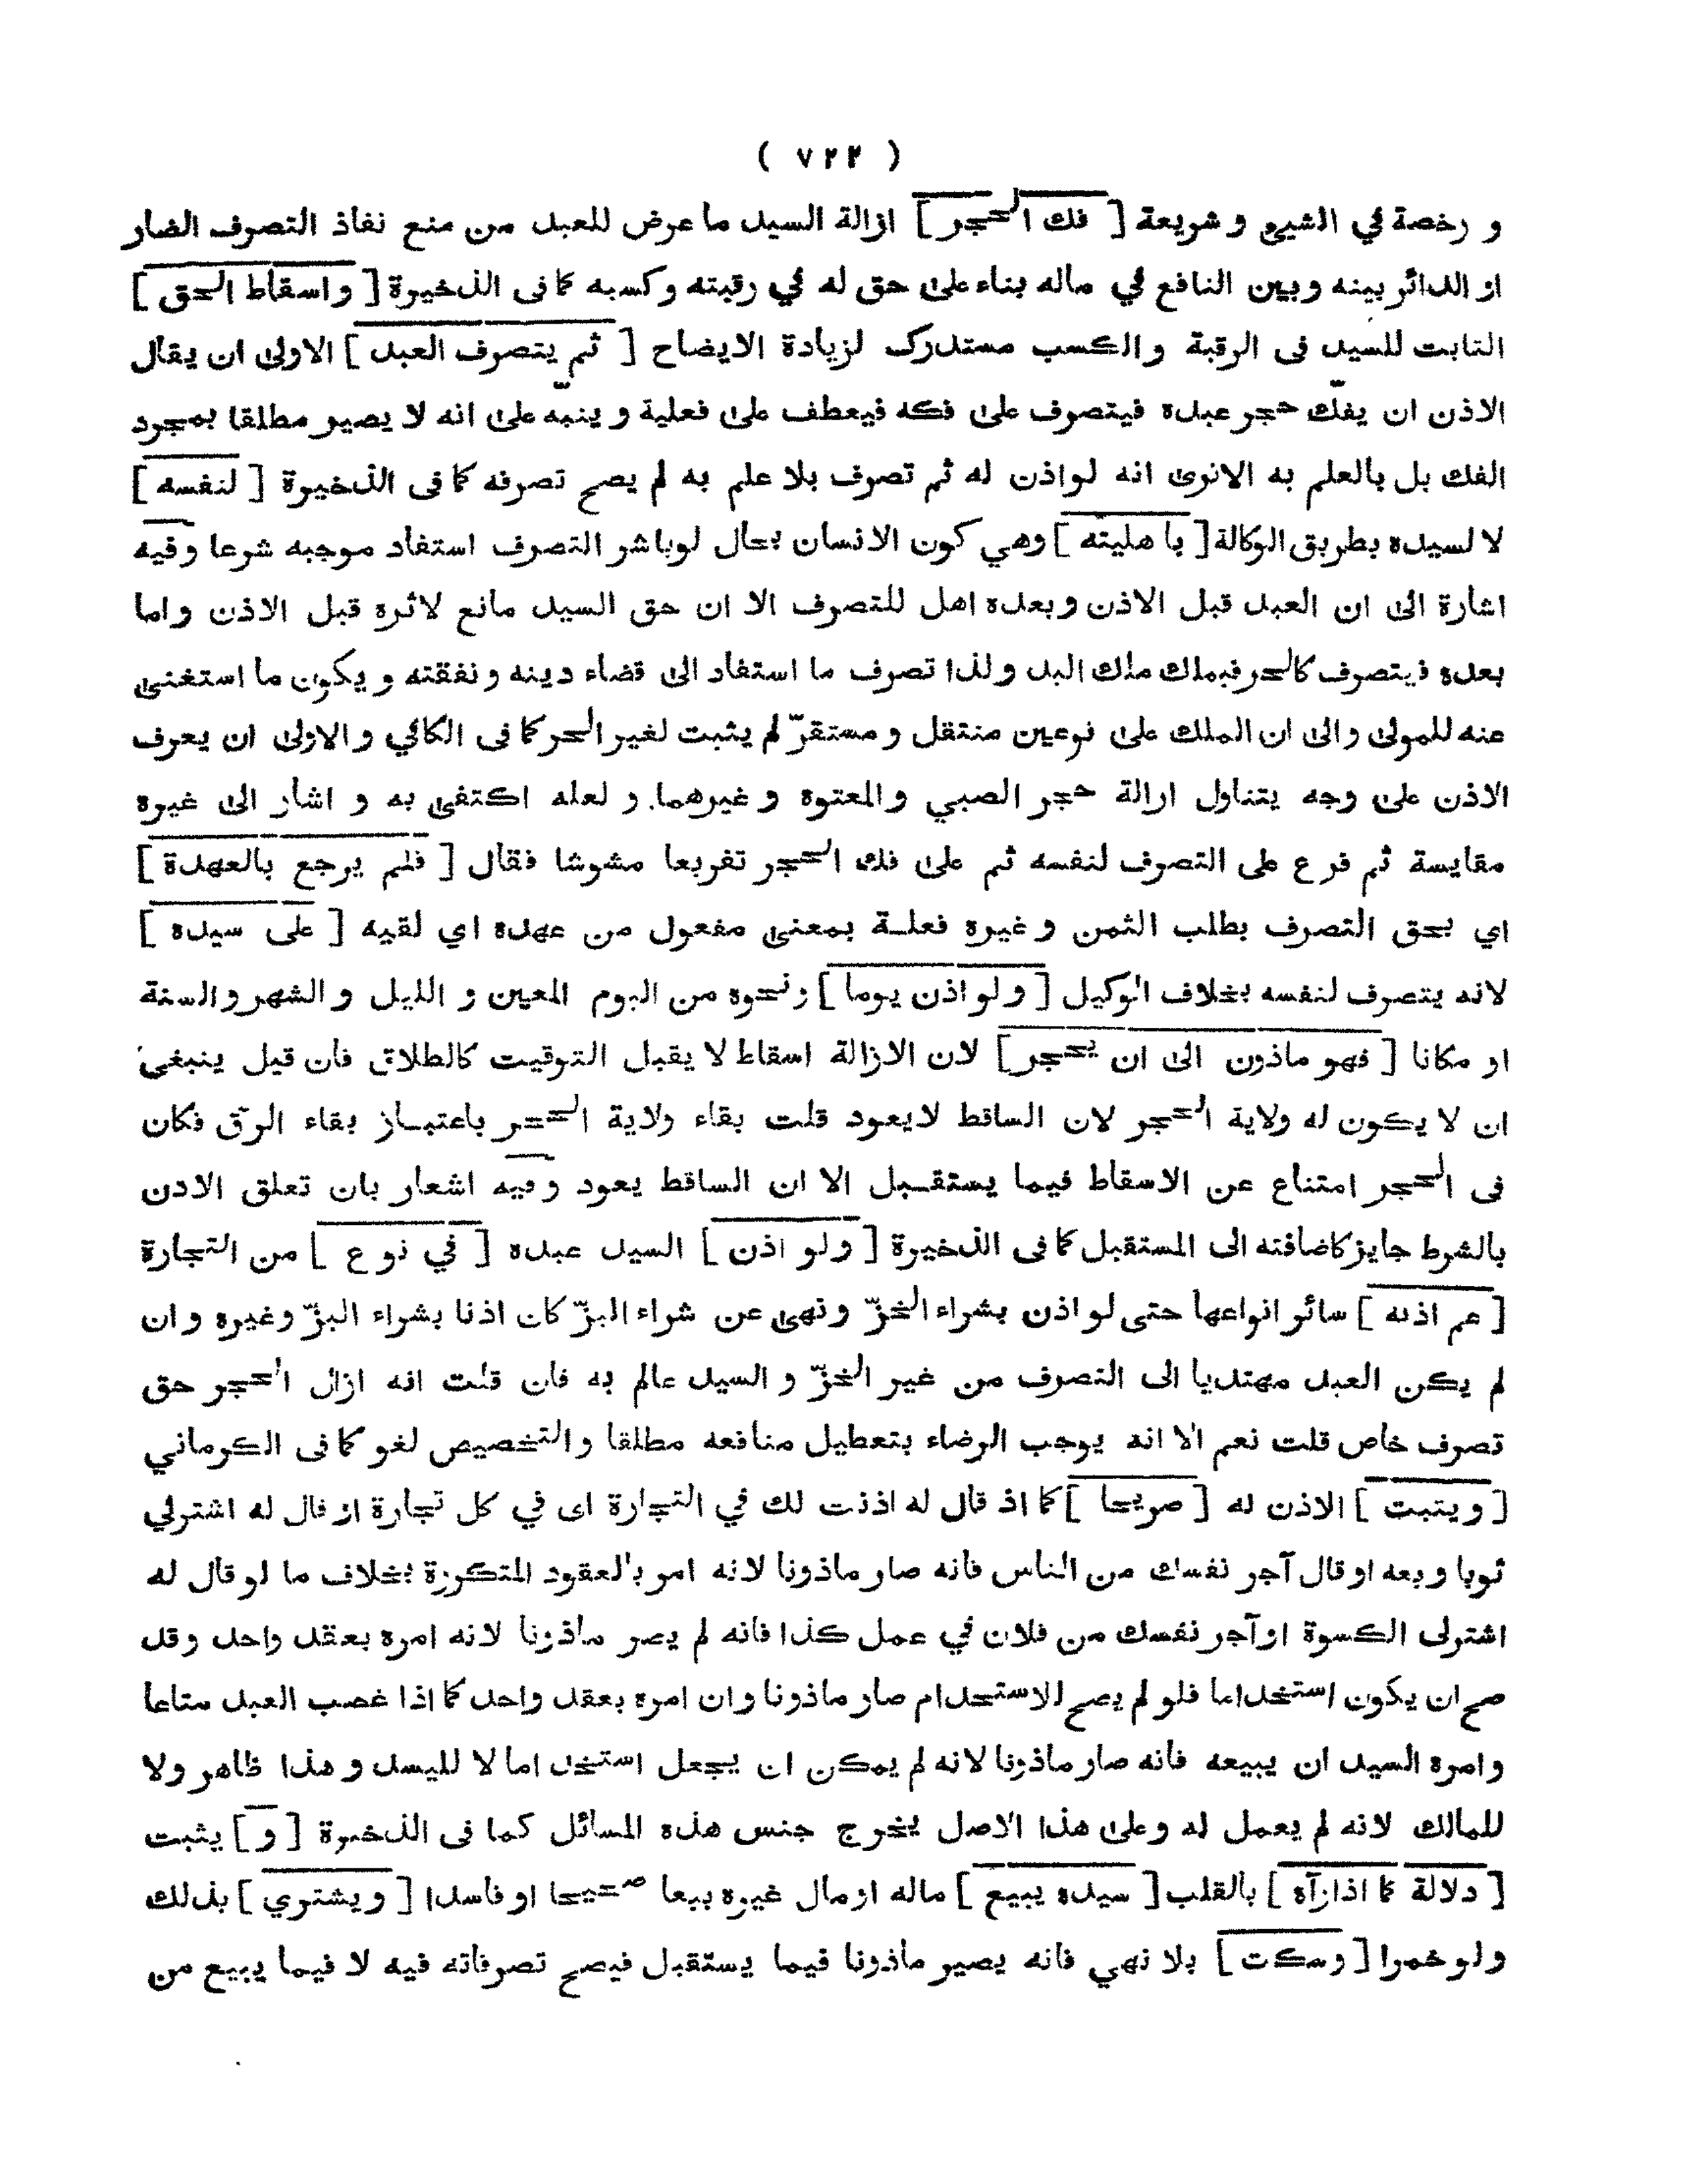 ( ٧٢٢ )
و رخصة في الشيئ و شريعة [ فك الحجر ] ازالة السيد ما عرض للعبد من منع نفاذ التصرف الضار
او الدائر بينه وبين النافع في ماله بناء على حق له في رقبته وكسبه كما فى الذخيرة [ واسقاط الحق ]
الثابت للسيد فى الرقبة والكسب مستدرك لزيادة الايضاح [ ثم يتصرف العبد ] الاولى ان يقال
الاذن ان يفكّ حجر عبده فيتصرف على فكه فيعطف على فعلية و ينبّه على انه لا يصير مطلقا بمجرد
الفك بل بالعلم به الانرى انه لو اذن له ثم تصرف بلا علم به لم يصح تصرفه كما فى الذخيرة [ لنفسه ]
لا لسيده بطريق الوكالة [ با هليته ] وهي كون الانسان بحال لو باشر التصرف استفاد موجبه شرعا وفيه
اشارة الى ان العبد قبل الاذن وبعده اهل للتصرف الا ان حق السيد مانع لاثره قبل الاذن واما
بعده فيتصرف كالحر فيملك ملك اليد ولذا تصرف ما استفاد الى قضاء دينه و نفقته و يكون ما استغنى
عنه للمولى والى ان الملك على نوعين منتقل و مستقرّ لم يثبت لغير الحر كما فى الكافي و الاولى ان يعرف
الاذن على وجه يتناول ازالة حجر الصبي والمعتوه وغيرهما و لعله اكتفى به و اشار الى غيره
مقايسة ثم فرع على التصرف لنفسه ثم على فك الحجر تفريعا مشوشا فقال [ فلم يرجع بالعهدة ]
اي بحق التصرف بطلب الثمن وغيره فعلة بمعنى مفعول من عهده اي لقيه [ على سيده ]
لانه يتصرف لنفسه بخلاف الوكيل [ ولو اذن يوما ] ونحوه من اليوم المعين و الليل و الشهر والسنة
او مكانا [ فهو ماذون الى ان يحجر ] لان الازالة اسقاط لا يقبل التوقيت كالطلاق فان قيل ينبغي
ان لا يكون له ولاية الحجر لان الساقط لايعود قلت بقاء ولاية الحجر باعتبار بقاء الرّق فكان
فى الحجر امتناع عن الاسقاط فيما يستقبل الا ان الساقط يعود وفيه اشعار بان تعلق الاذن
بالشرط جايز كاضافته الى المستقبل كما فى الذخيرة [ ولو اذن ] السيد عبده [ في نوع ] من التجارة
[ عم اذنه ] سائر انواعها حتى لو اذن بشراء الخزّ ونهى عن شراء البزّ كان اذنا بشراء البزّ وغيره وان
لم يكن العبد مهتديا الى التصرف من غير الخزّ و السيد عالم به فان قلت انه ازال الحجر حق
تصرف خاص قلت نعم الا انه يوجب الرضاء بتعطيل منافعه مطلقا والتخصيص لغو كما فى الكرماني
[ ويثبت ] الاذن له [ صريحا ] كما اذ قال له اذنت لك في التجارة اى في كل تجارة او قال له اشترلي
ثوبا وبعه او قال آجر نفسك من الناس فانه صار ماذونا لانه امر بالعقود المتكررة بخلاف ما لو قال له
اشترلى الكسوة او آجر نفسك من فلان في عمل كذا فانه لم يصر ماذونا لانه امره بعقد واحد وقد
صح ان يكون استخداما فلو لم يصح الاستحدام صار ماذونا وان امره بعقد واحد كما اذا غصب العبد متاعا
وامره السيد ان يبيعه فانه صار ماذونا لانه لم يمكن ان يجعل استخداما لا لليسد وهذا ظاهر ولا
للمالك لانه لم يعمل له وعلى هذا الاصل يخرج جنس هذه المسائل كما فى الذخيرة [ و ] يثبت
[ دلالة كما اذا رآه ] بالقلب [ سيده يبيع ] ماله او مال غيره بيعا صحيحا او فاسدا [ ويشتري ] بذلك
ولو خمرا [ وسكت ] بلا نهي فانه يصير ماذونا فيما يستقبل فيصح تصرفاته فيه لا فيما يبيع من